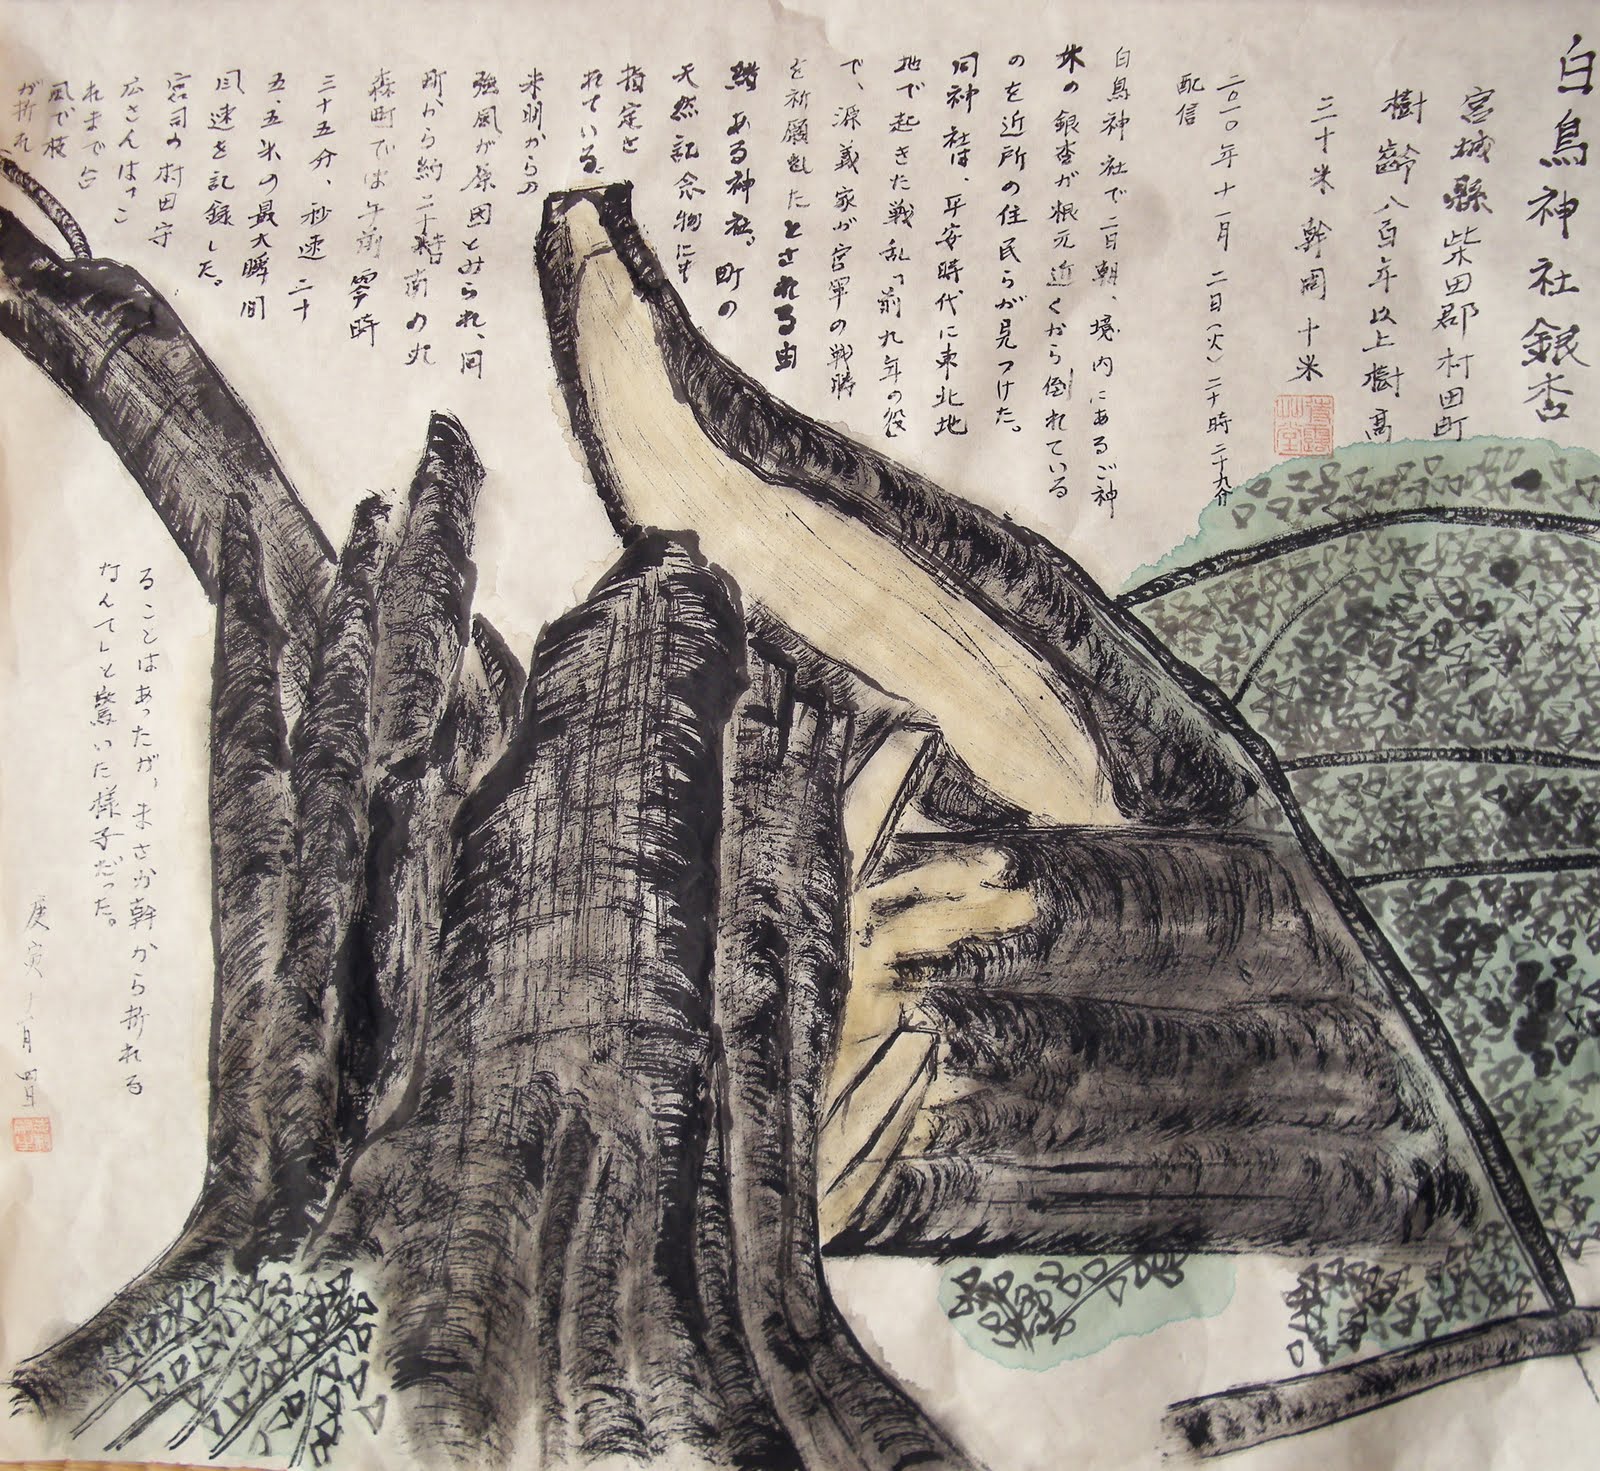 白鳥神社銀杏
宮城縣柴田郡村田町
樹齢八百年以上樹高
三十米幹周十米
二〇一〇年十一月二日(火)二十時二十九分
配信
白鳥神社で二日朝、境内にあるご神
木の銀杏が根元近くから倒れている
のを近所の住民らが見つけた。
同神社は、平安時代に東北地
地で起きた戦乱「前九年の役」
で、源義家が官軍の戦勝
を祈願したとされる由
緒ある神社。町の
天然記念物にも
指定さ
れている。
未明からの
強風が原因とみられ、同
町から約二十粁南の丸
森町では午前零時
三十五分、秒速二十
五.五米の最大瞬間
風速を記録した。
宮司の村田守
広さんは「こ
れまで台
風で枝
が折れ
ることはあったが、まさか幹から折れる
なんて」と驚いた様子だった。
庚寅十一月